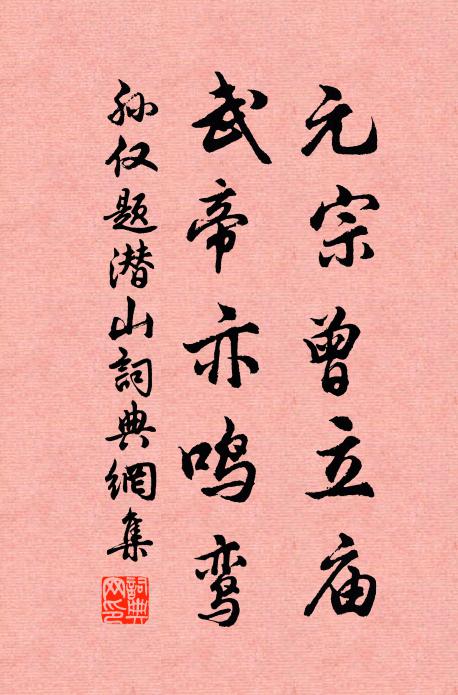 元宗曾立庙
武帝亦鸣鸾
孙仅题潜山詞典網集
詞典网印